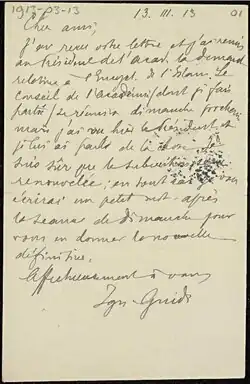 1913-03-13
13. III. 13
01
Cher ami,
J'ai reçu votre lettre et j'ai remis
au Président de l'Acad. la demande
relative à l'Encycl. de l'Islam. Le
Conseil de l'Académie (dont je fais
partie) se réunira dimanche prochain
mais j'ai vu hier le Président, et
je lui ai parlé de la chose. Je
suis sûr que la subvention sera
renouvelée; en tout cas je vous
écrirai un petit mot après
la séance de dimanche pour
vous en donner la nouvelle
définitive.
Affectueusement à vous
Ign. Guidi